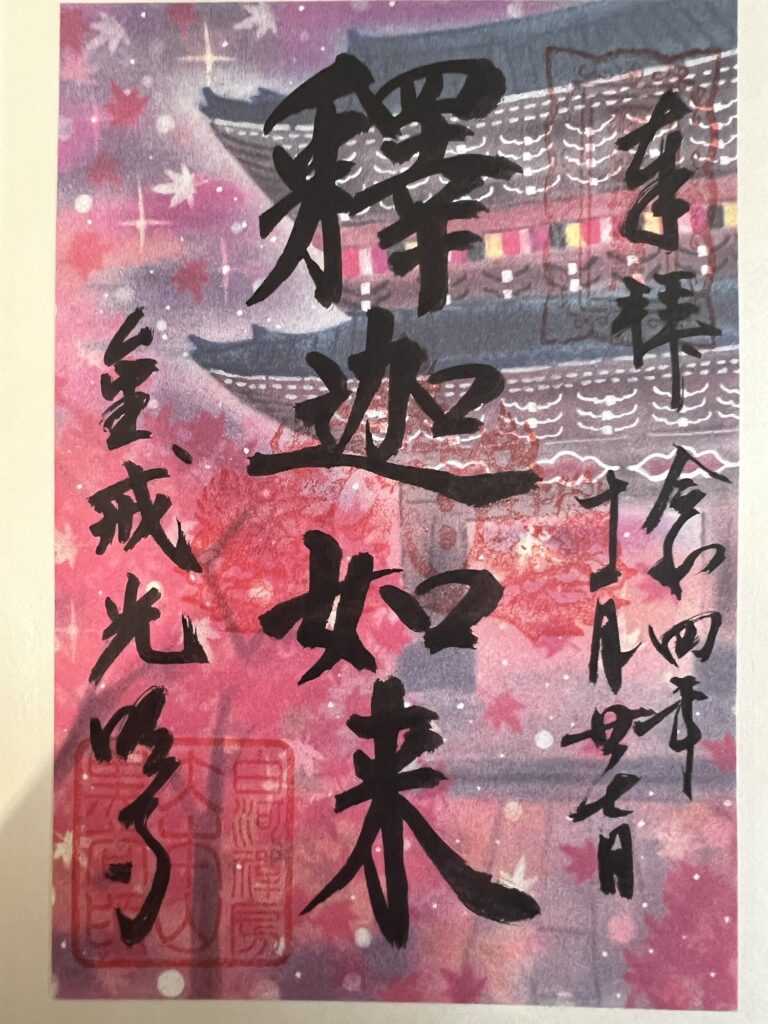 奉拝
令和四年
十一月廿七日
釋迦如来
金戒光明寺
白河禪房
大本山